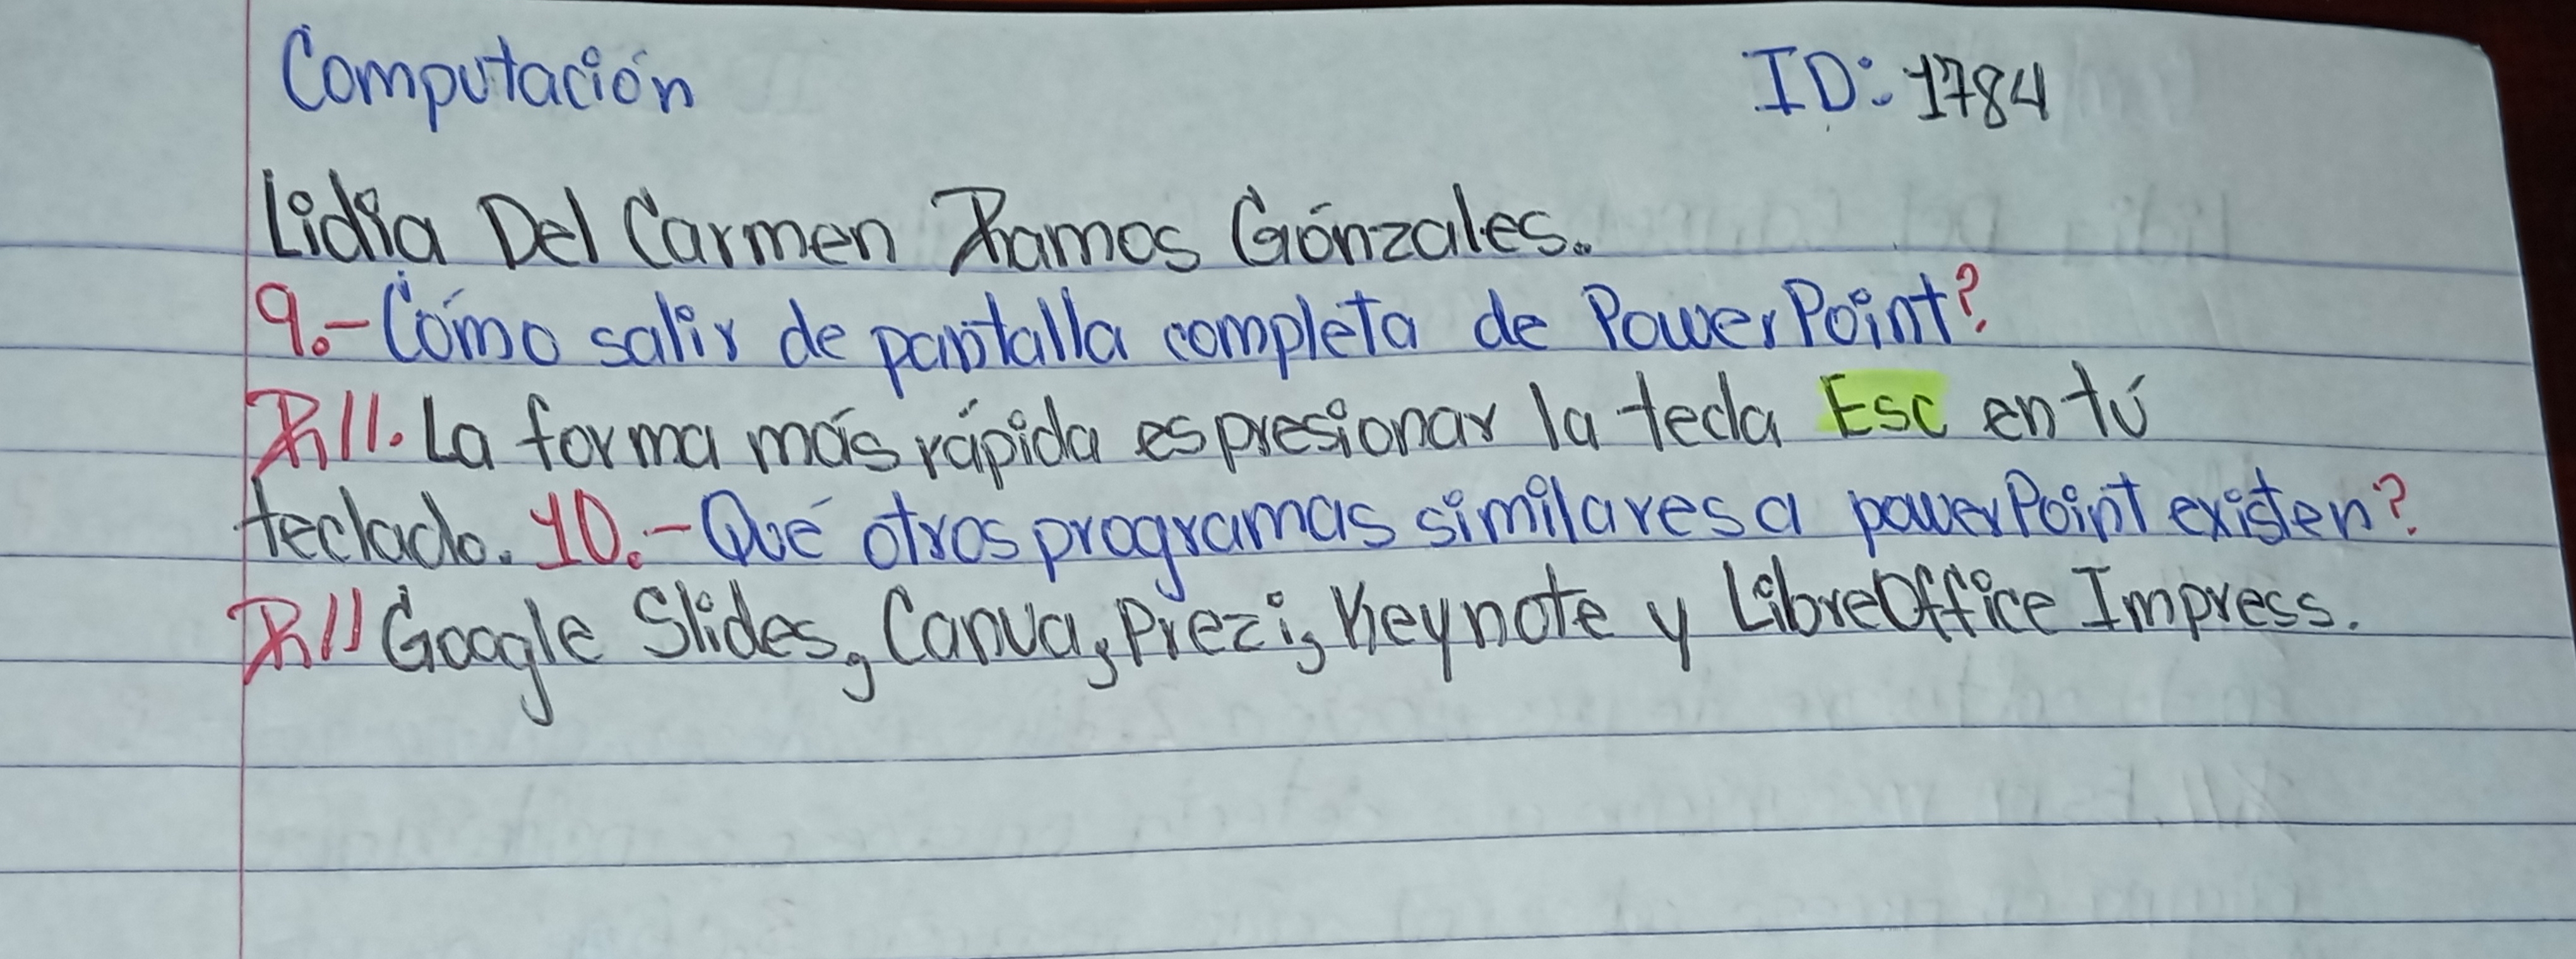 Computación ID: 1784
Lidia Del Carmen Ramos Gónzales.
9.- Cómo salir de pantalla completa de PowerPoint?
R//. La forma más rápida es presionar la tecla Esc en tú
teclado. 10.- Qué otros programas similares a powerPoint existen?
R// Google Slides, Canva, Prezi, Keynote y LibreOffice Impress.